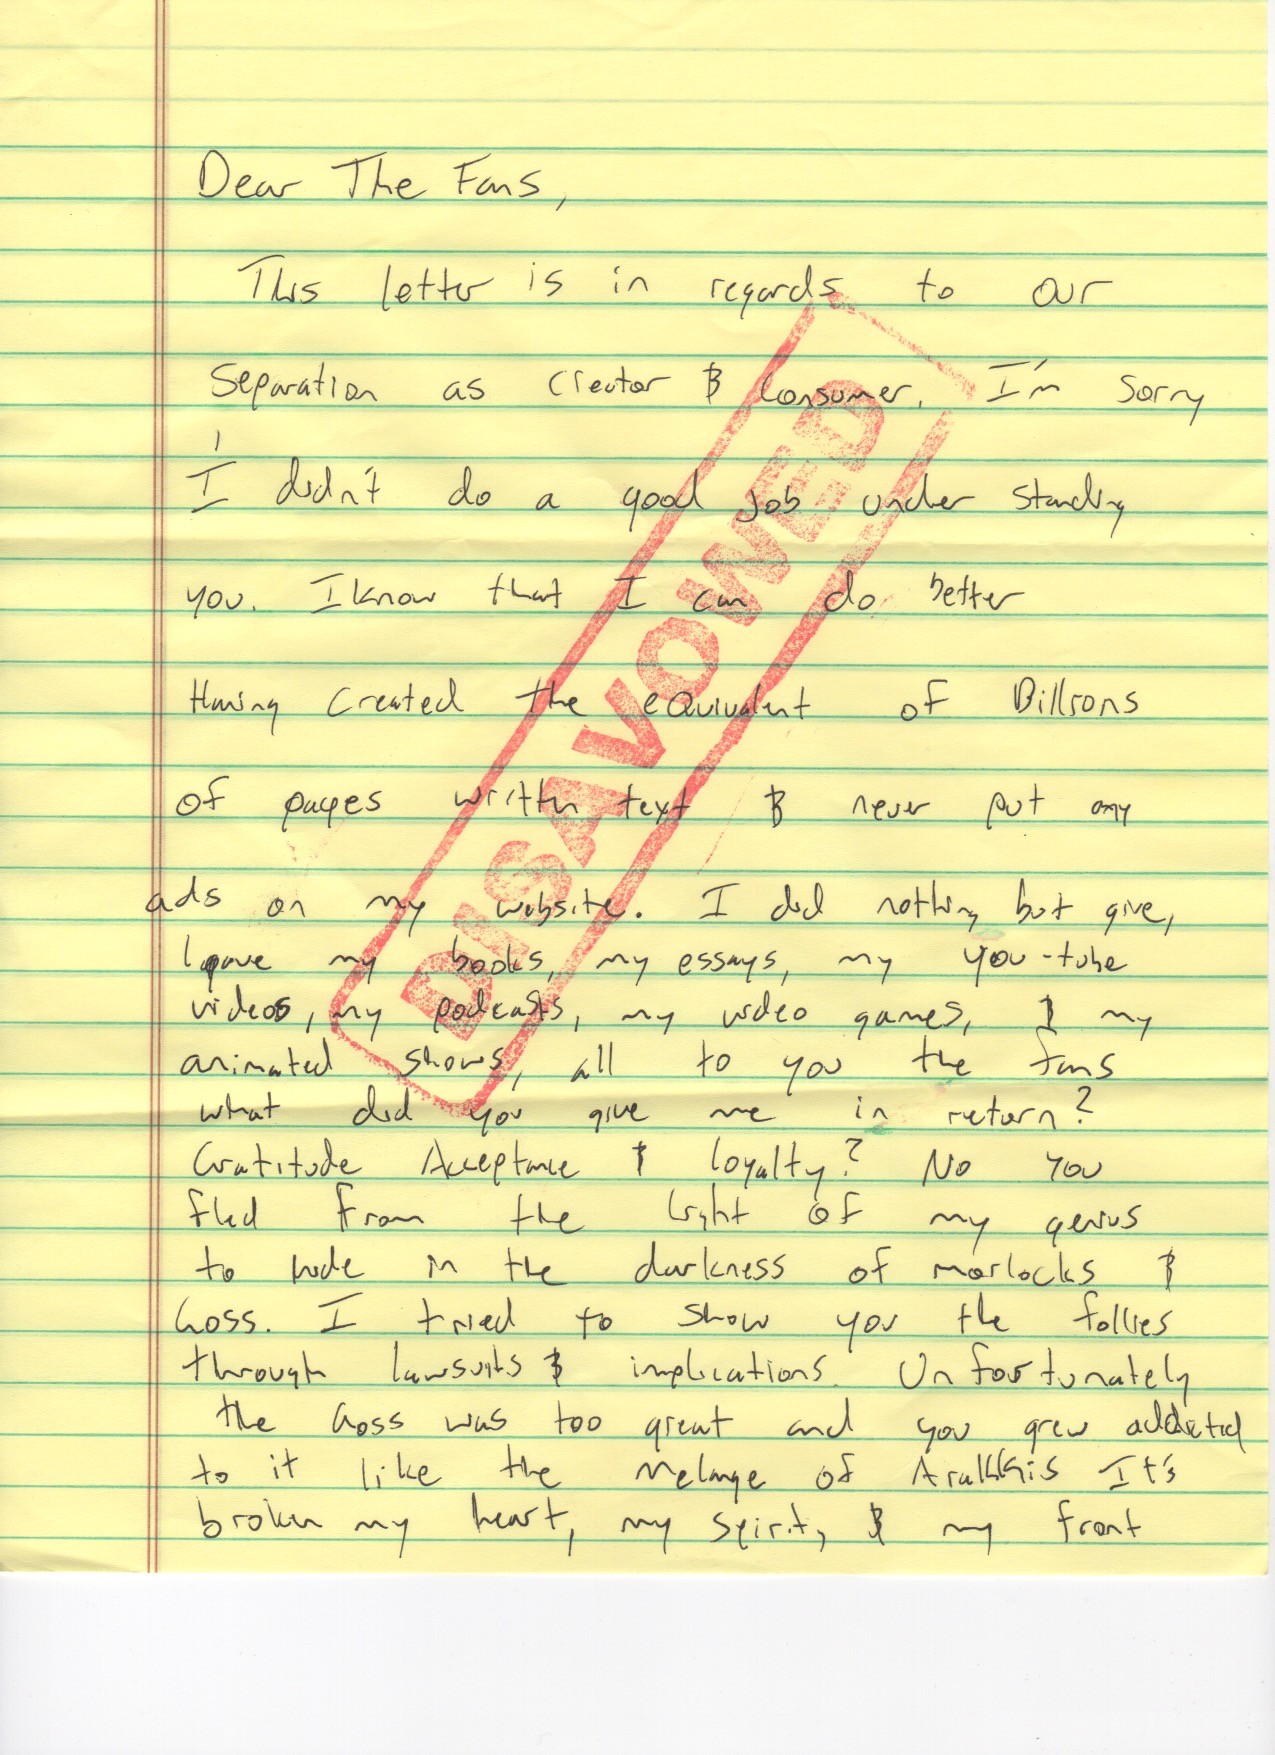 Dear The Fans,
This letter is in regards to our
Separation as Creator & Consumer. I'm Sorry
I didn't do a good job under standing
you. I know that I can do better
Having created the equivalent of Billions
of pages written text & never put any
ads on my website. I did nothing but give,
I gave my books, my essays, my you-tube
videos, my podcasts, my video games, & my
animated shows, all to you the fans
what did you give me in return?
Gratitude Acceptance & loyalty? No you
fled from the light of my genius
to hide in the darkness of morlocks &
Goss. I tried to show you the follies
through lawsuits & implications. Unfortunately
the Goss was too great and you grew addicted
to it like the Melange of Arakkis It's
broken my heart, my spirit, & my front
DISAVOWED